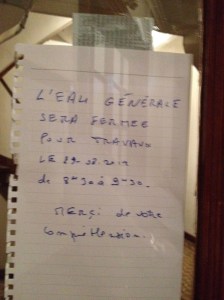 L'EAU GÉNÉRALE
SERA FERMEE
POUR TRAVAUX
LE
de 8H30 à 9H30.
MERÇI de votre
compréhension.